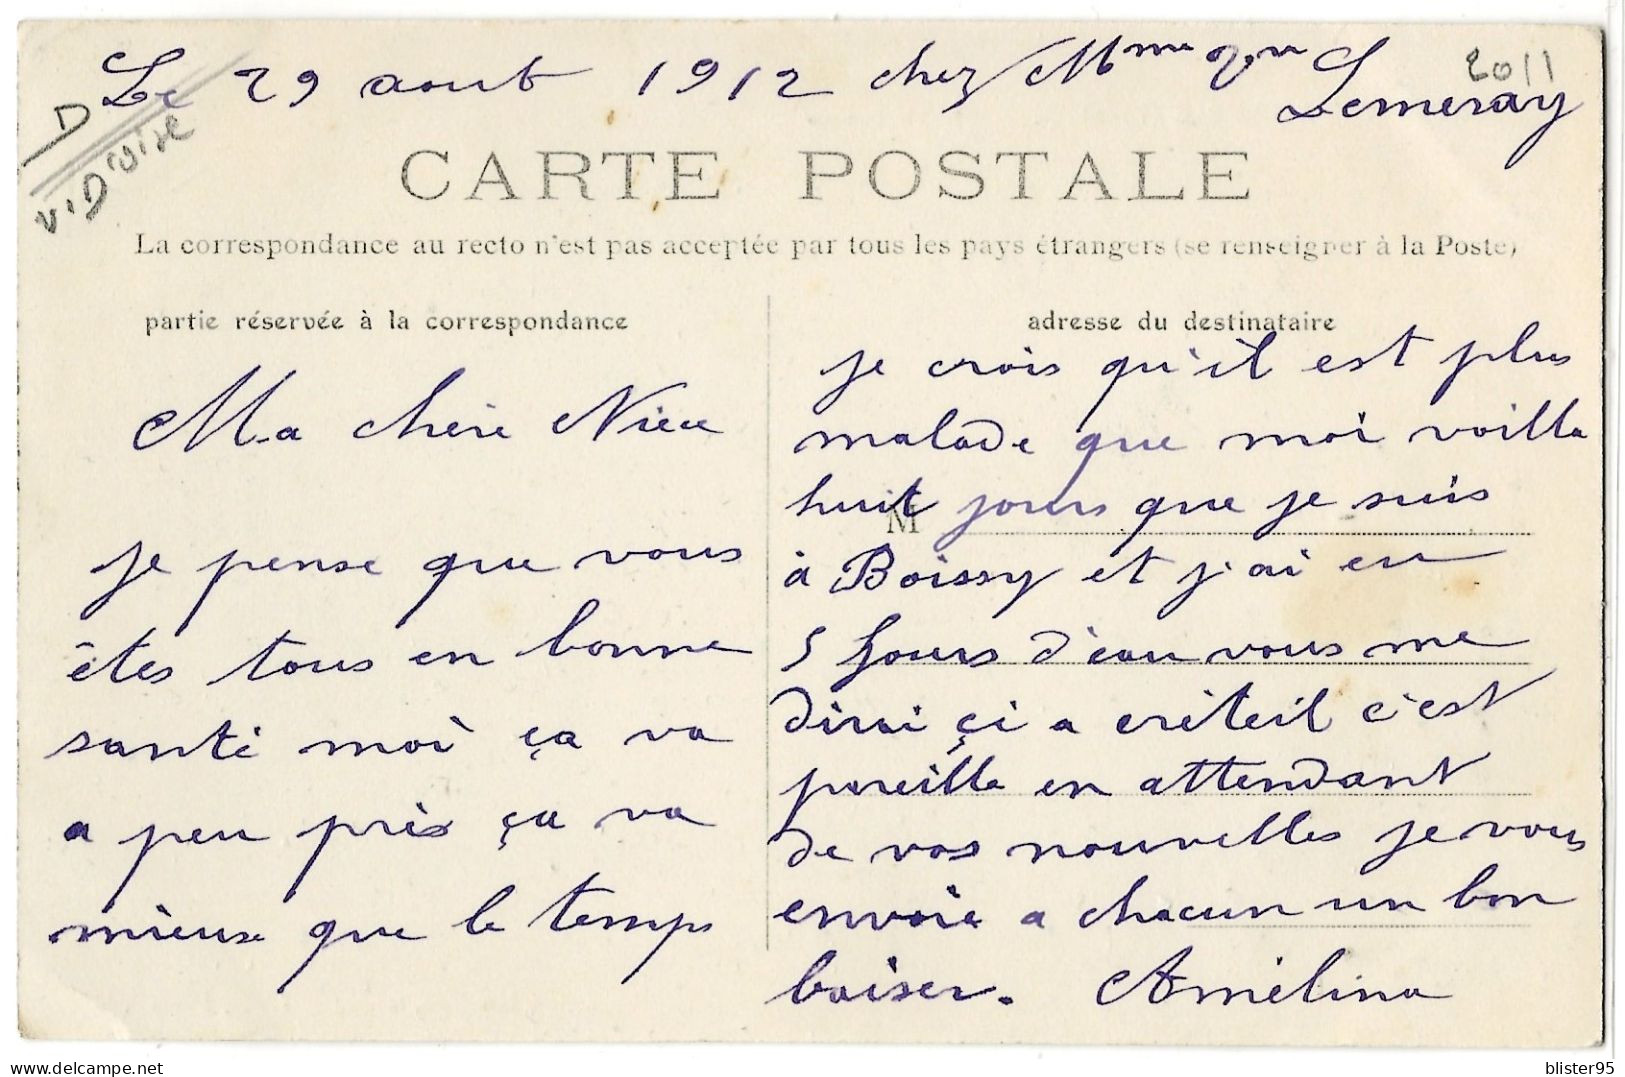 Le 29 aout 1912 chez Mme Vve
Lemeray
2011
D
V. D'Oise
CARTE POSTALE
La correspondance au recto n'est pas acceptée par tous les pays étrangers (se renseigner à la Poste)
partie réservée à la correspondance
Ma chère Nièce
je pense que vous
êtes tous en bonne
santé moi ça va
a peu près ça va
mieux que le temps
adresse du destinataire
je crois qu'il est plus
malade que moi voilla
huit jours que je suis
M
à Boissy et j'ai eu
5 jours d'eau vous me
dirai çi a créteil c'est
pareille en attendant
de vos nouvelles je vous
envoie a chacun un bon
baiser. Amélina
blister95